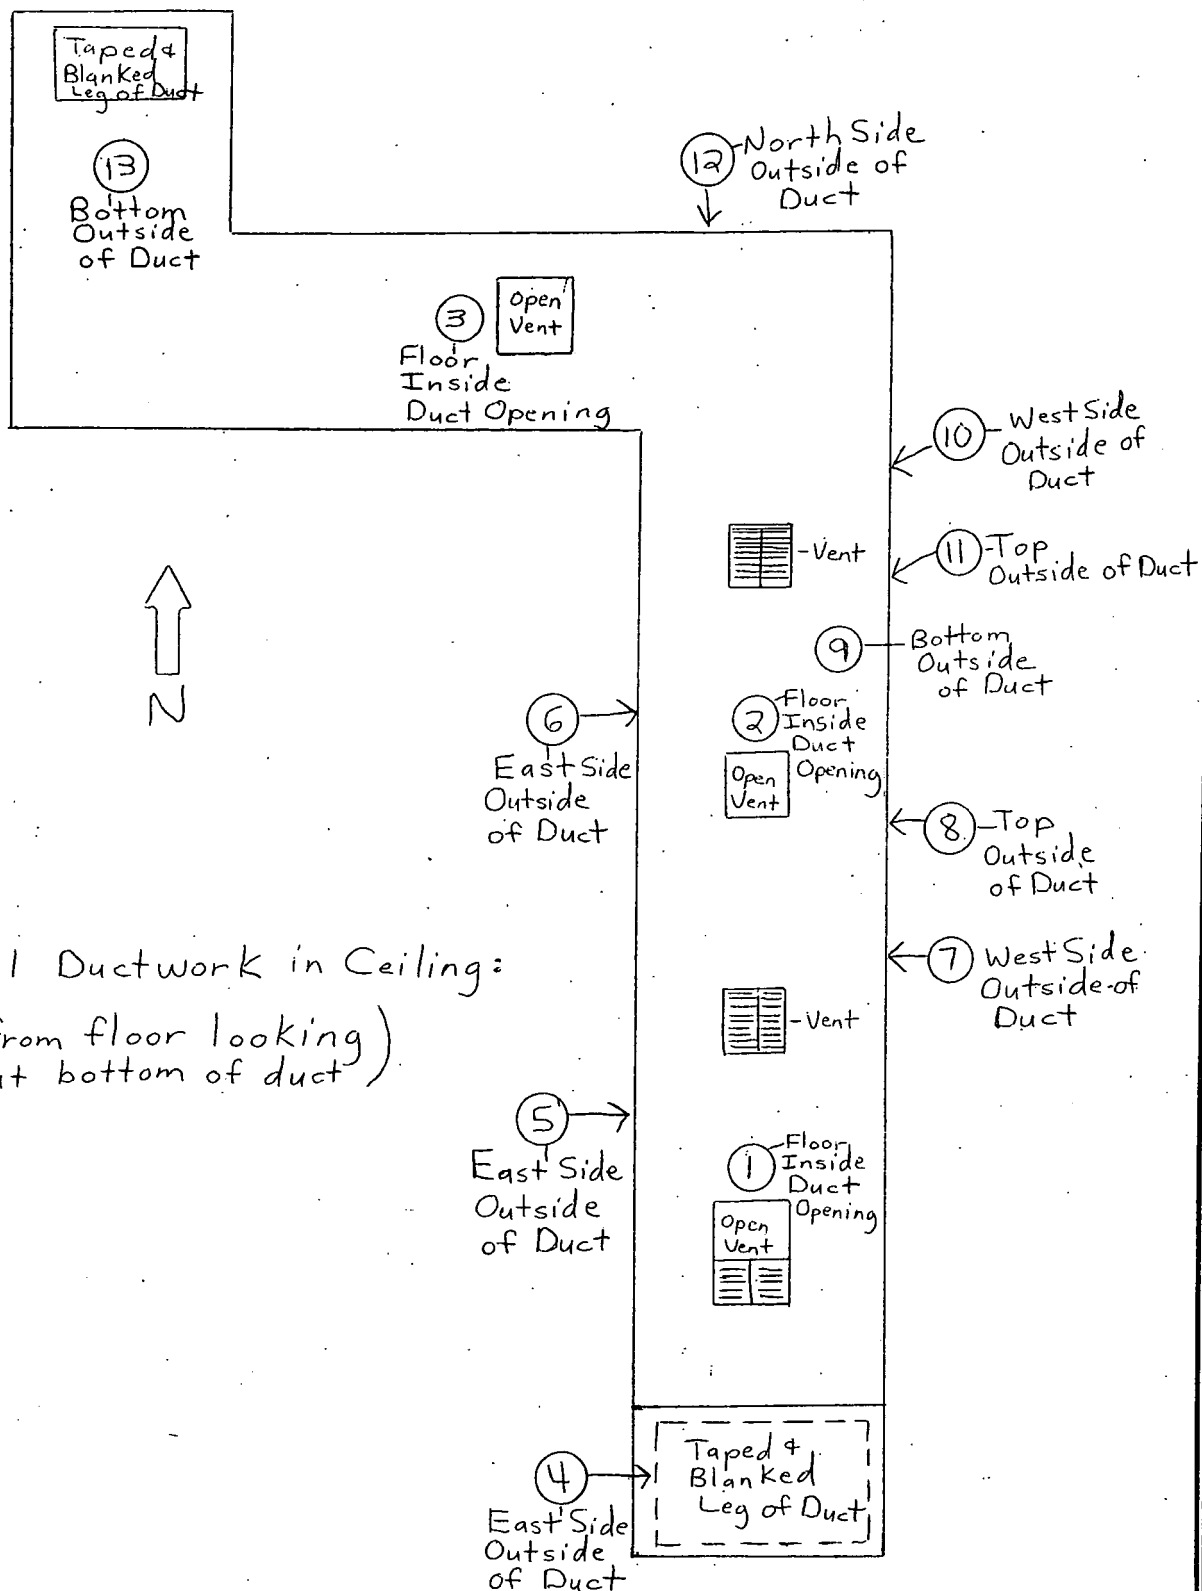 Taped &
Blanked
Leg of Duct
13
Bottom
Outside
of Duct
12 - North Side
Outside of
Duct
3
Open
Vent
Floor
Inside
Duct Opening
10 - West Side
Outside of
Duct
- Vent
11 - Top
Outside of Duct
N
9 - Bottom
Outside
of Duct
6
East Side
Outside
of Duct
2 Floor
Inside
Duct
Opening
Open
Vent
8 - Top
Outside
of Duct
1 Ductwork in Ceiling:
from floor looking)
at bottom of duct
7 West Side
Outside of
Duct
- Vent
5
East Side
Outside
of Duct
1 Floor
Inside
Duct
Opening
Open
Vent
4
East Side
Outside
of Duct
Taped &
Blanked
Leg of Duct